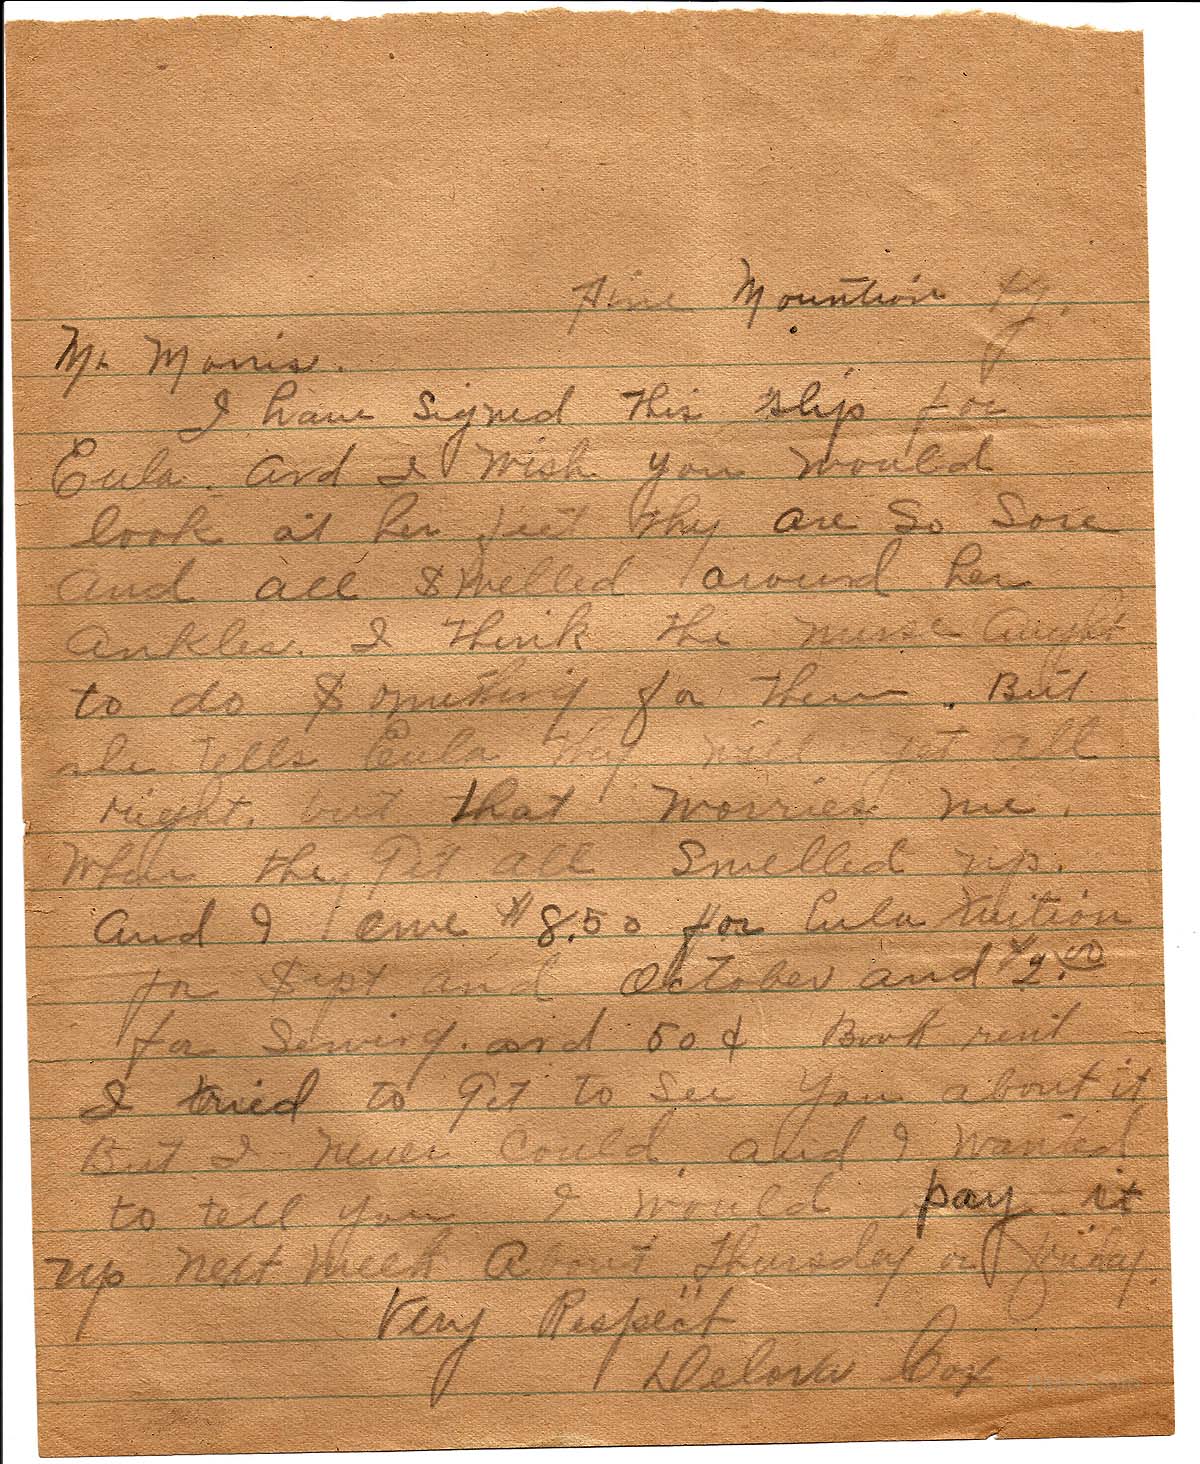 Pine Mountain Ky.
Mr Morris.
I have signed this slip for
Eula. and I wish you would
look at her feet thy are So Sore
and all Swelled around her
Ankles. I think the nurse aught
to do Something for them. But
she tells Eula thy will get all
right, but that worries me.
When they Get all Swelled up.
and I owe $8.50 for Eula tuition
for Sept and October and $2.00
for Sewing. and 50¢ Book rent
I tried to Get to See you about it
But I never Could, and I wanted
to tell you I would pay it
up next week About Thursday or Friday.
Very Respect
Delora Cox